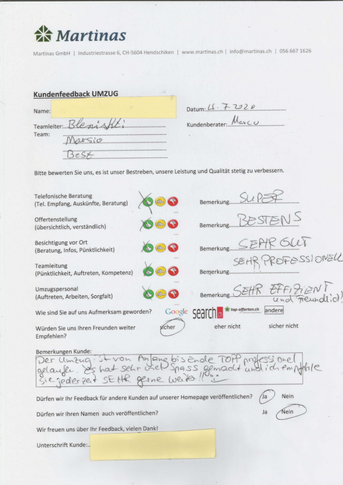 Martinas
Martinas GmbH | Industriestrasse 6, CH-5604 Hendschiken | www.martinas.ch | info@martinas.ch | 056 667 1626
Kundenfeedback UMZUG
Name:
Datum: 4.7.2020
Teamleiter:
Kundenberater: Marcu
Team:
Bitte bewerten Sie uns, es ist unser Bestreben, unsere Leistung und Qualität stetig zu verbessern.
Telefonische Beratung
(Tel. Empfang, Auskünfte, Beratung)
Bemerkung SUPER
Offertenstellung
(übersichtlich, verständlich)
Bemerkung BESTENS
Besichtigung vor Ort
(Beratung, Infos, Pünktlichkeit)
Bemerkung SEHR GUT
Teamleitung
(Pünktlichkeit, Auftreten, Kompetenz)
Bemerkung SEHR PROFESSIONELL
Umzugspersonal
(Auftreten, Arbeiten, Sorgfalt)
Bemerkung SEHR EFFIZIENT
und freundlich!
Wie sind Sie auf uns Aufmerksam geworden?
Google search.ch top offerten.ch andere
Würden Sie uns Ihren Freunden weiter
Empfehlen?
sicher eher nicht sicher nicht
Bemerkungen Kunde:
Der Umzug ist von Anfang bis ende TOPP professionell
gelaufen. Es hat sehr viel Spass gemacht und ich empfehle
Sie jederzeit SEHR gerne weiter!!
Dürfen wir Ihr Feedback für andere Kunden auf unserer Homepage veröffentlichen? Ja Nein
Dürfen wir Ihren Namen auch veröffentlichen? Ja Nein
Wir freuen uns über Ihr Feedback, vielen Dank!
Unterschrift Kunde: